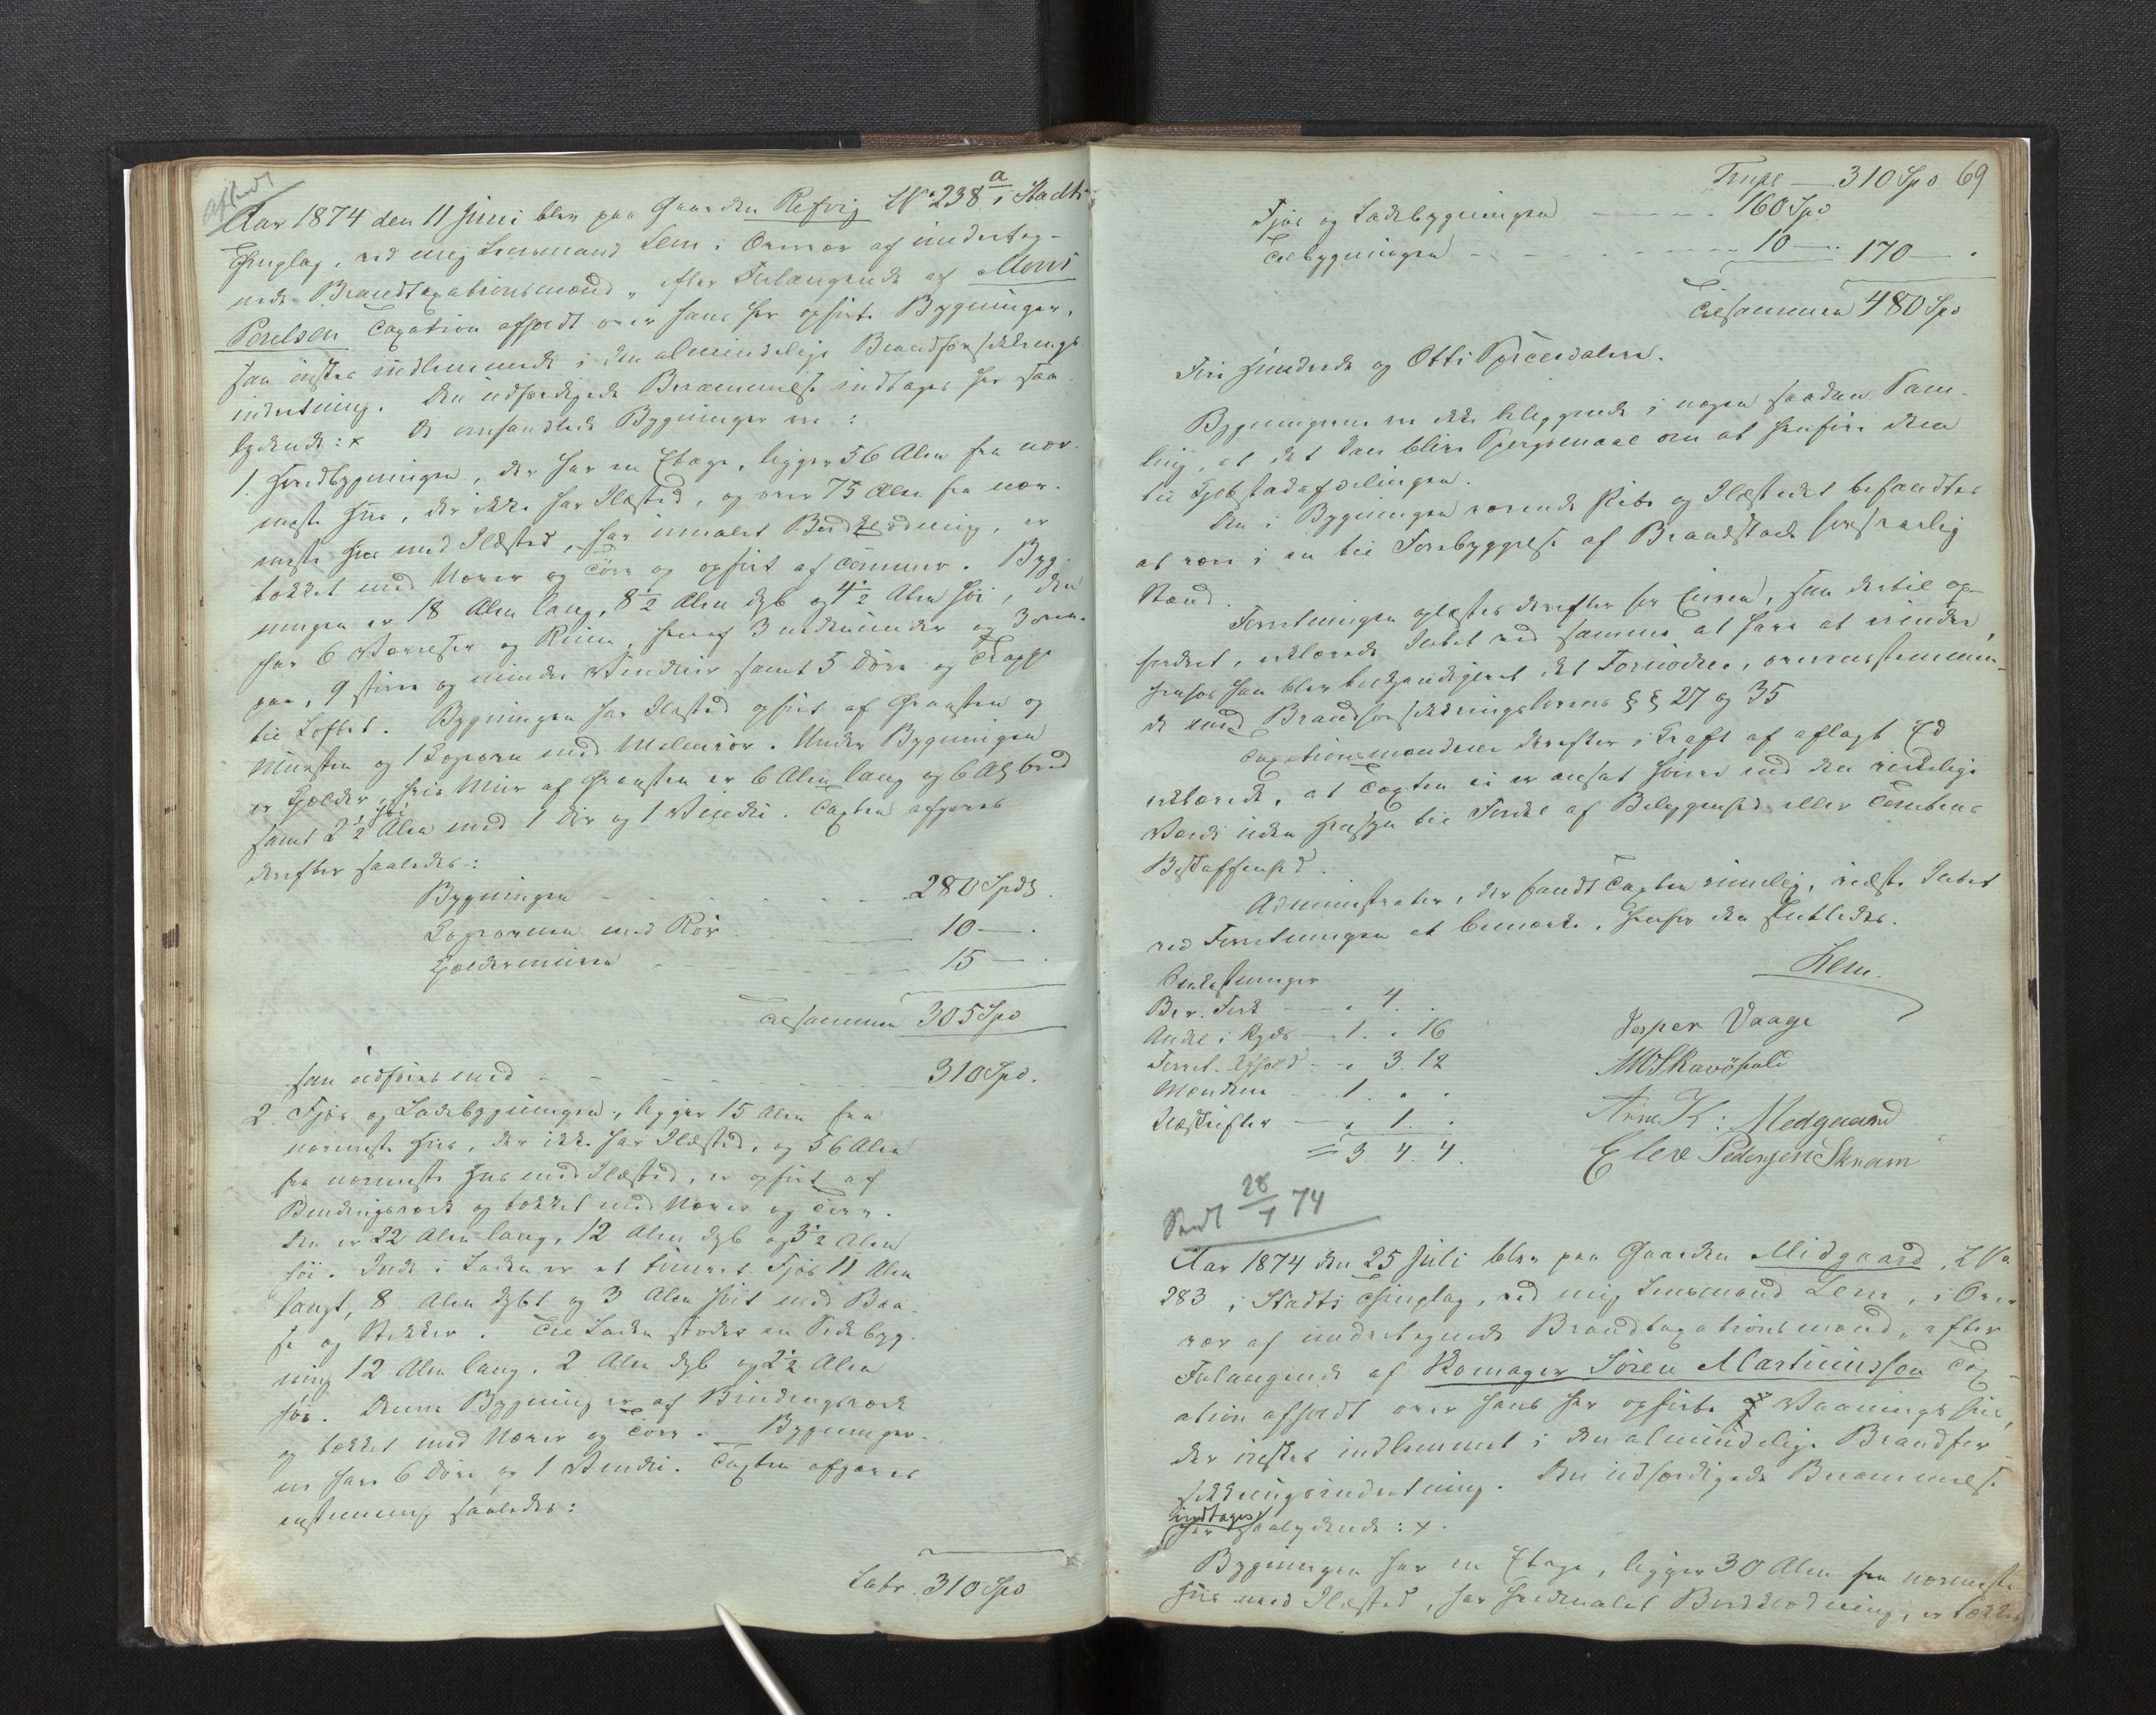 afsendt
Aar 1874 den 11 Juni blev paa Gaarden Refvig LNo 238 a i Stadts
Thinglag, ved mig Lensmand Lem i Overvær af underteg-
nede Brandtaxationsmænd, efter Forlangende af Mons
Poulsen Taxation afholdt over hans her opførte Bygninger,
som ønskes indlemmede i den almindelige Brandforsikrings
indretning. Den udfærdigede Berammelse indtages her saa
lydende: x De omhandlede Bygninger ere:
1. Hovedbygningen, der har en Etage, ligger 56 Alen fra nær-
meste Huus, der ikke har Ildsted, og over 75 Alen fra nær-
meste Huus med Ildsted, har umalet Bordklædning, er
tækket med Næver og Törv og opfört af Tömmer. Byg-
ningen er 18 Alen lang, 8½ Alen dyb og 4½ Alen höi, den
har 6 Værelser og Rum, heraf 3 nedenunder og 3 oven-
paa, 9 större og mindre Vinduer samt 5 Döre og Trappe
til Loftet. Bygningen har Ildsted opfört af Graasten og
Mursten og 1 Kogeovn med Malmrör. Under Bygningen
er Kjelder, hvis Mur af Graasten er 6 Alen lang og 6 Al. bred
samt 2½ Alen höi med 1 Dör og 1 Vindue. Taxten afgaves
derefter saaledes:
Bygningen - - - 280 Spdr.
Kogeovnen med Rör - - - 10 — .
Kjeldermuren - - - 15 — .
Tilsammen 305 Spd
som udföres med - - - 310 Spd.
2. Fjös og Ladebygningen, ligger 15 Alen fra
nærmeste Huus, der ikke har Ildsted, og 56 Alen
fra nærmeste Huus med Ildsted, er opfört af
Bindingsværk og tækket med Næver og Törv.
Den er 22 Alen lang, 12 Alen dyb og 3½ Alen
höi. Inde i Laden er et tömret Fjös 11 Alen
langt, 8 Alen dybt og 3 Alen höit med Baa-
se og Stikker. Til Laden stöder en Sidebyg-
ning 12 Alen lang, 2 Alen dyb og 2½ Alen
höi. Denne Bygning er af Bindingsværk
og tækket med Næver og Törv. Bygninger-
ne have 6 Döre og 1 Vindue. Taxten afgaves
enstemmig saaledes:
Latr. 310 Spd
Transp. — 310 Spd 69
Fjös og Ladebygningen - - - 160 Spd
Tilbygningen - - - 10 — . 170 — .
Tilsammen 480 Spd
Fire Hundrede og Otti Speciesdaler.
Bygningerne ere ikke beliggende i nogen saadan Sam-
ling, at det kan blive Spörgsmaal om at henföre dem
til Kjöbstadafdelingen.
Den i Bygningen værende Pibe og Ildstedet befandtes
at være i en til Forebyggelse af Brandskade forsvarlig
Stand.
Forretningen oplæstes derefter for Eieren, som dertil op-
fordret, erklærede Intet ved samme at have at erindre,
hvorhos han blev bekjendtgjort det Fornödne, overensstemmen-
de med Brandforsikringslovens § § 27 og 35
Taxationsmændene derefter i Kraft af aflagt Ed
erklærede, at Taxten ei er ansat höiere end den virkelige
Værdi uden Hensyn til Fordel af Beliggenhed eller Tomtens
Beskaffenhed.
Administrator, der fandt Taxten rimelig, vidste Intet
ved Forretningen at bemærke, hvorfor den sluttedes.
Lem
Omkostninger
Ber. Ford — „ 4 .
Andel i Kyds - 1. „ 16
Forret. Afhold - „ 3 12
Mændene - 1. „ .
Udskrifter — „ 1. .
= 3. 4. 4.
Jesper Vaage
M O Skavöpold
Arne K: Medgaard
Elew Pedersen Skram
Sendt 28/7 74
Aar 1874 den 25 Juli blev paa Gaarden Midgaard, LNo
283 i Stadts Thinglag, ved mig Lensmand Lem, i Over-
vær af undertegnede Brandtaxationsmænd, efter
Forlangende af Skomager Sören Martinussen Tax-
ation afholdt over hans her opförte Vaaningshus,
der önskes indlemmet i den almindelige Brandfor-
sikringsindretning. Den udfærdigede Berammelse
indtages
her saalydende: x.
Bygningen har en Etage, ligger 30 Alen fra nærmeste
Huus med Ildsted, har hvidmalet Bordklædning, er tækket